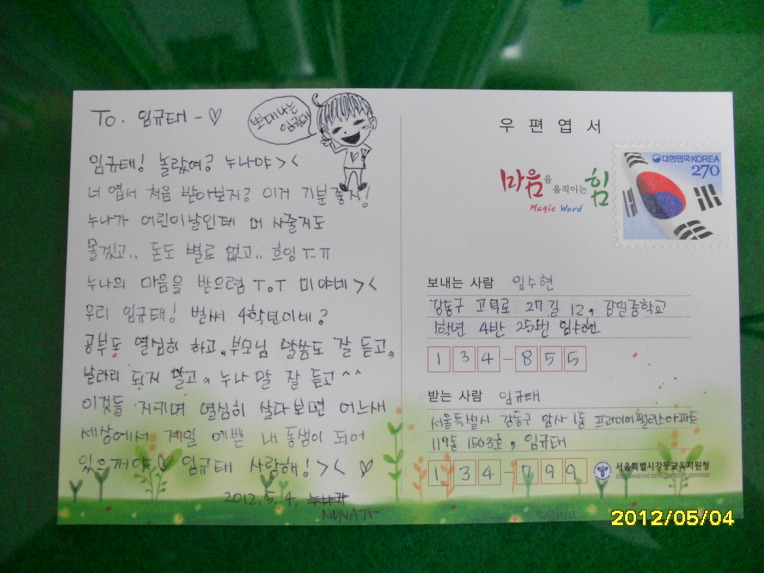 To. 임규태 - ♡
뽀대나는
임규태
임규태! 놀랐어? 누나야><
너 엽서 처음 받아보지? 이거 기분 좋지!
누나가 어린이날인데 머 사줄지도
모르겠고.. 돈도 별로 없고.. 흐잉 ㅜ.ㅠ
누나의 마음을 받으렴 T.T 미야네><
우리 임규태! 벌써 4학년이네?
공부도 열심히 하고, 부모님 말씀도 잘 듣고,
날라리 되지 말고, 누나 말 잘 듣고^^
이것들 지키며 열심히 살다보면 어느새
세상에서 제일 예쁜 내 동생이 되어
있으꺼야♡ 임규태 사랑해!>< ♡
2012. 5. 4.
NUNA가-
우편엽서
마음을 움직이는 힘
Magic Word
대한민국 KOREA
270
보내는 사람 임수현
강동구 고덕로 27길 12, 강일중학교
1학년 4반 25번 임수현
134-855
받는 사람 임규태
서울특별시 강동구 암사1동 프라이어팰리스아파트
119동 1503호, 임규태
134-799
서울특별시강동교육지원청
2012/05/04